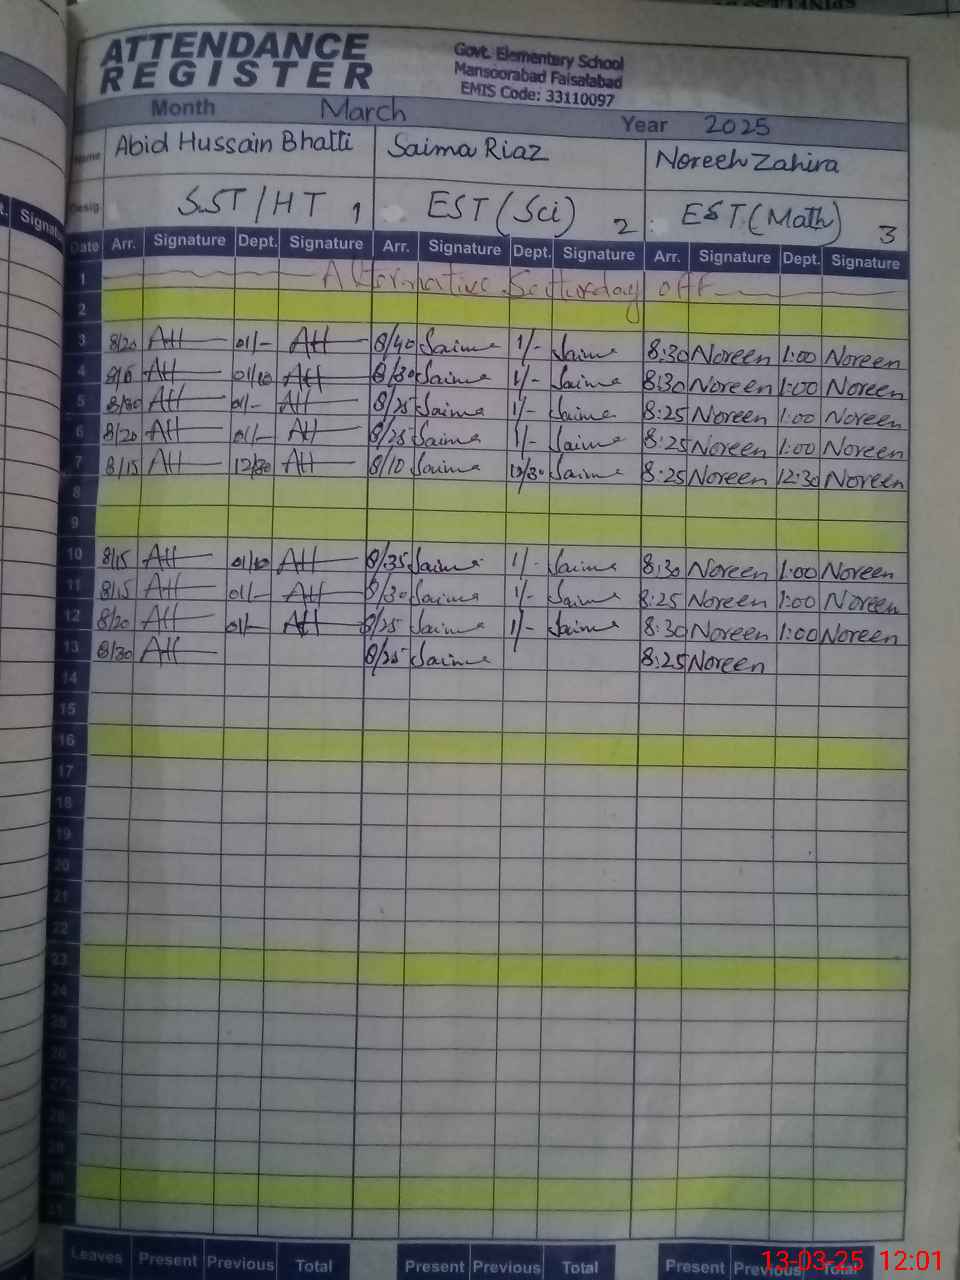 ATTENDANCE
REGISTER
Govt. Elementary School
Mansoorabad Faisalabad
EMIS Code: 33110097
Month March Year 2025
Name Abid Hussain Bhatti Saima Riaz Noreen Zahira
Desig. S.ST/HT 1 EST (Sci) 2 EST (Math) 3
Signature
Date Arr. Signature Dept. Signature Arr. Signature Dept. Signature Arr. Signature Dept. Signature
1 Alternative Secturday off
2
3 8/20 AH 01/- AH 8/40 Saima 1/- Saima 8:30 Noreen 1:00 Noreen
4 AH 01/10 AH 8/30 Saima 1/- Saima 8:30 Noreen 1:00 Noreen
5 8/30 AH 01/- AH 8/25 Saima 1/- Saima 8:25 Noreen 1:00 Noreen
6 8/20 AH 01/- AH 8/25 Saima 1/- Saima 8:25 Noreen 1:00 Noreen
7 8/15 AH 12/30 AH 8/10 Saima 12/30 Saima 8:25 Noreen 12:30 Noreen
8
9
10 8/15 AH 01/10 AH 8/35 Saima 1/- Saima 8:30 Noreen 1:00 Noreen
11 8/15 AH 01/- AH 8/30 Saima 1/- Saima 8:25 Noreen 1:00 Noreen
12 8/20 AH 01/- AH 8/25 Saima 1/- Saima 8:30 Noreen 1:00 Noreen
13 8/30 AH 8/25 Saima 8:25 Noreen
14
15
16
17
18
19
20
21
22
23
24
25
26
27
28
29
30
31
Leaves Present Previous Total Present Previous Total Present Previous Total
13-03-25 12:01